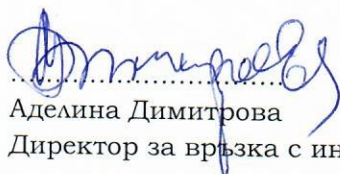 Аделина Димитрова
Директор за връзка с ин